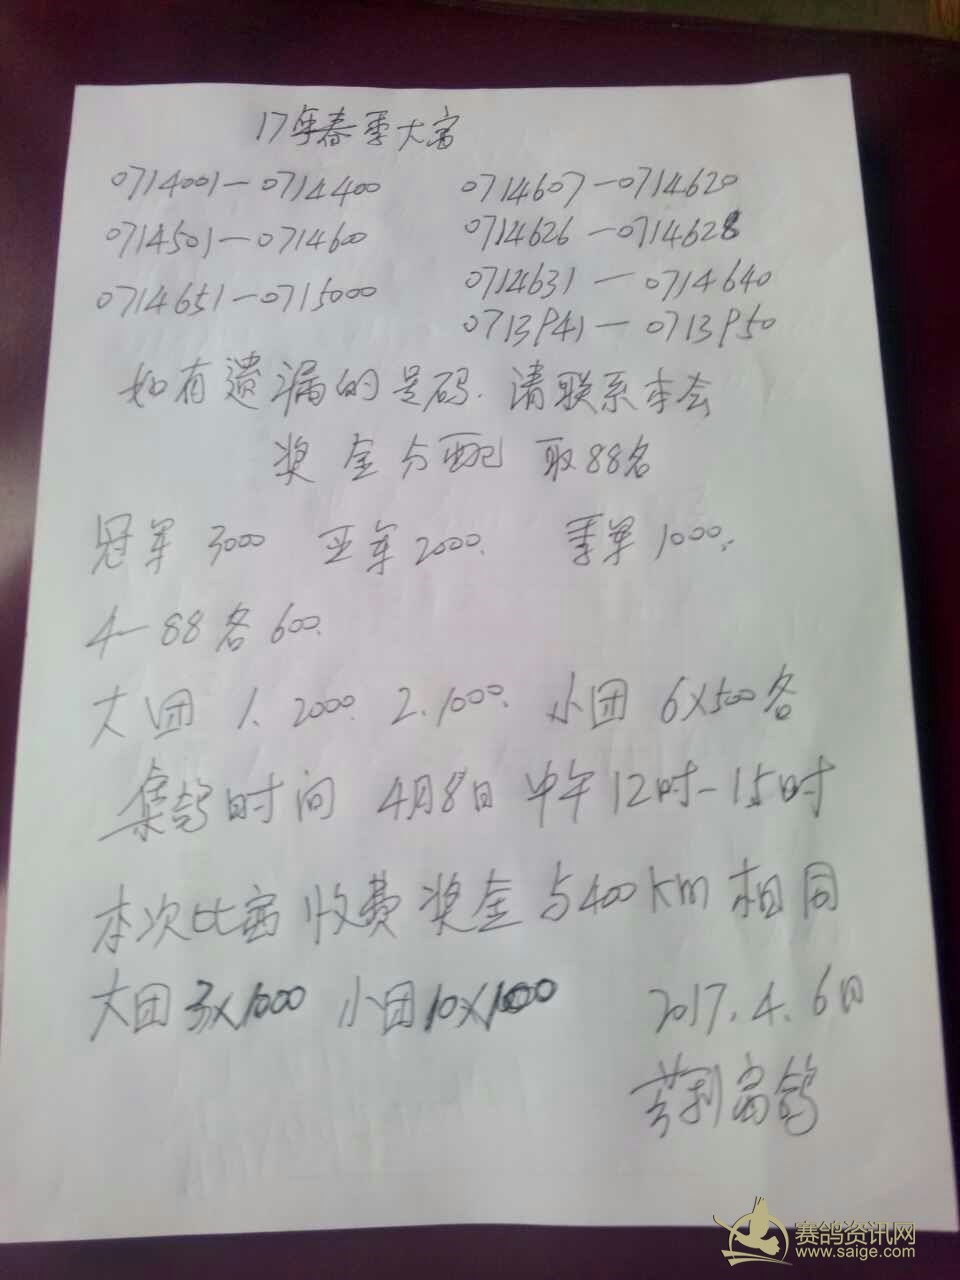 17年春季大赛
0714001—0714400 0714607—0714620
0714501—0714600 0714626—0714628
0714651—0715000 0714631—0714640
0713941—0713950
如有遗漏的号码.请联系本会
奖金分配 取88名
冠军3000 亚军2000. 季军1000.
4—88名600.
大团 1、2000. 2.1000. 小团 6X500名
集鸽时间 4月8日 中午12时-15时
本次比赛收费奖金与400km相同
大团3X1000 小团10X100
2017.4.6日
赛鸽
赛鸽资讯网
www.saige.com